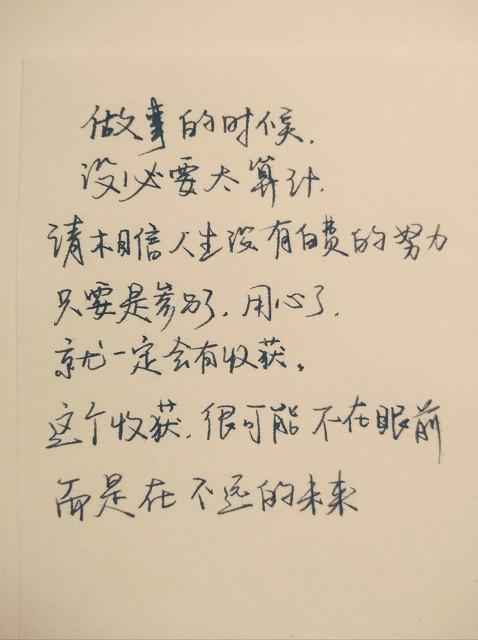 做事的时候.
没必要太算计.
请相信人生没有白费的努力
只要是参与了,用心了,
就一定会有收获。
这个收获.很可能不在眼前
而是在不远的未来